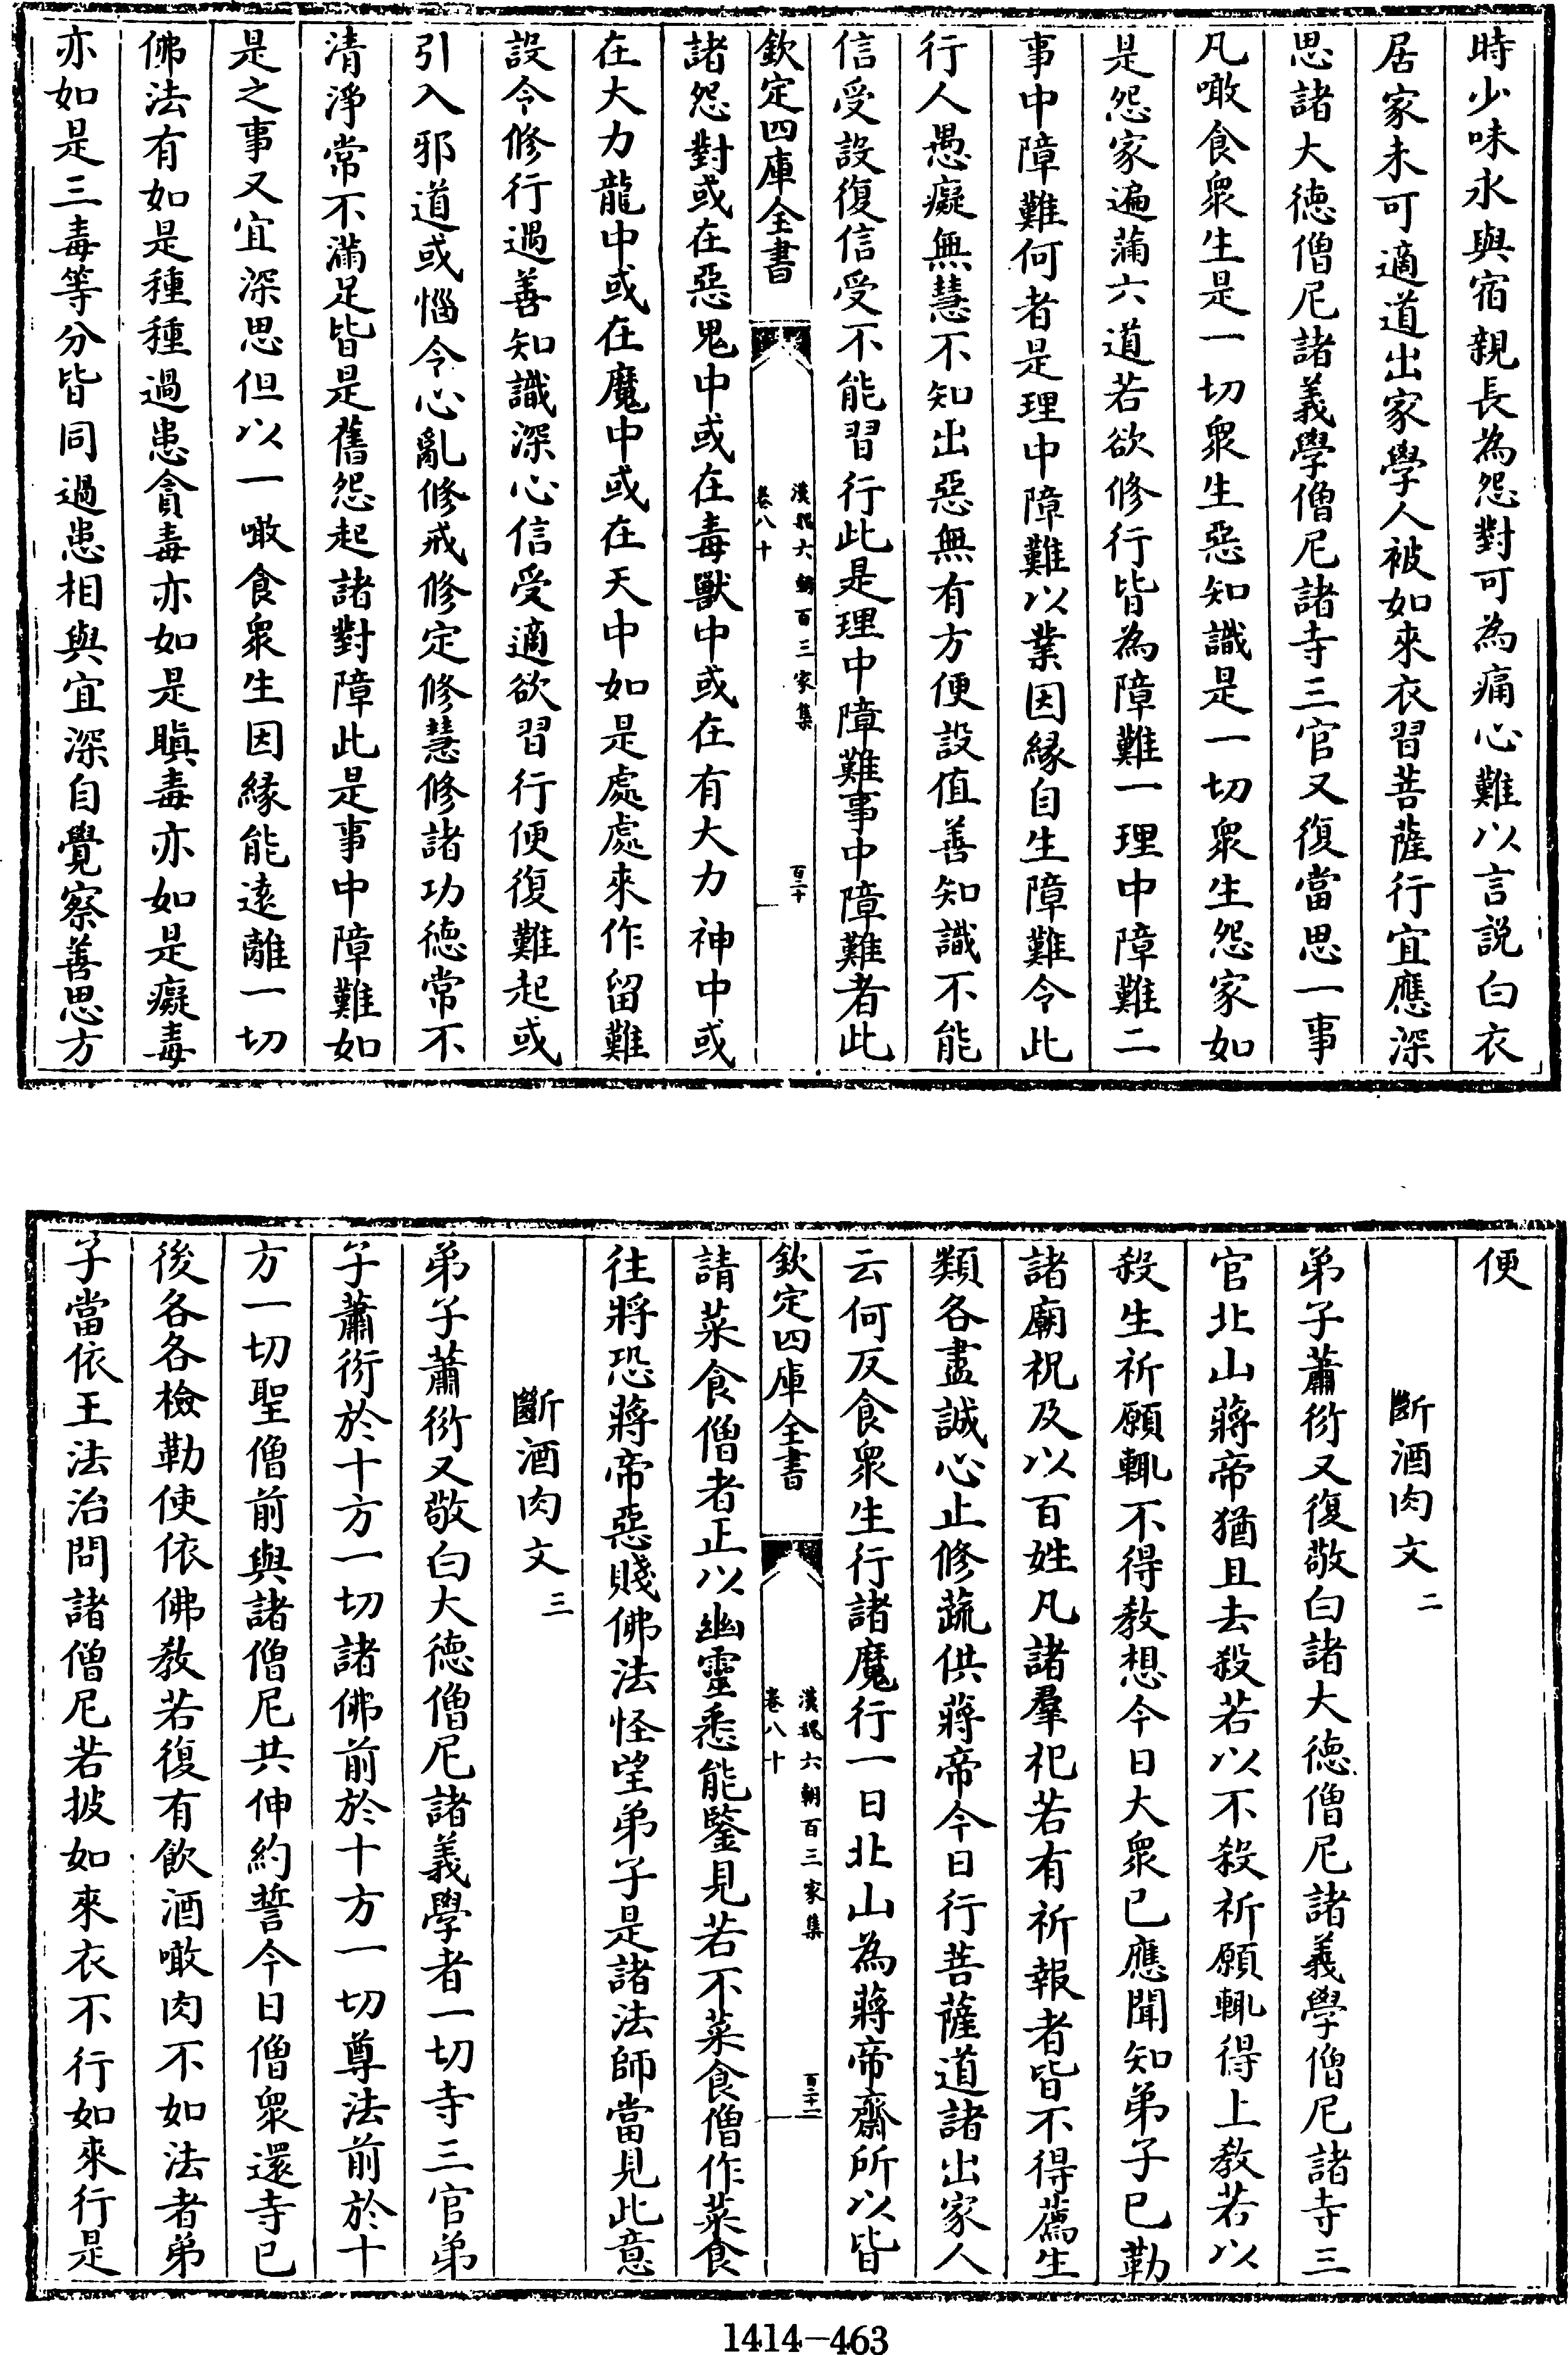 時少味永與宿親長為怨對可為痛心難以言説白衣
居家未可適道出家學人被如來衣習菩薩行宜應深
思諸大徳僧尼諸義學僧尼諸寺三官又復當思一事
凡噉食衆生是一切衆生惡知識是一切衆生怨家如
是怨家遍滿六道若欲修行皆為障難一理中障難二
事中障難何者是理中障難以業因緣自生障難令此
行人愚癡無慧不知出惡無有方便設值善知識不能
信受設復信受不能習行此是理中障難事中障難者此
欽定四庫全書
漢魏六朝百三家集
卷八十
百二十
諸怨對或在惡鬼中或在毒獸中或在有大力神中或
在大力龍中或在魔中或在天中如是處處來作留難
設令修行遇善知識深心信受適欲習行便復難起或
引入邪道或惱令心亂修戒修定修慧修諸功徳常不
清淨常不滿足皆是舊怨起諸對障此是事中障難如
是之事又宜深思但以一噉食衆生因緣能遠離一切
佛法有如是種種過患貪毒亦如是瞋毒亦如是癡毒
亦如是三毒等分皆同過患相與宜深自覺察善思方
便
斷酒肉文二
弟子蕭衍又復敬白諸大徳僧尼諸義學僧尼諸寺三
官北山蔣帝猶且去殺若以不殺祈願輒得上教若以
殺生祈願輒不得教想今日大衆已應聞知弟子已勒
諸廟祝及以百姓凡諸羣祀若有祈報者皆不得薦生
類各盡誠心止修蔬供蔣帝今日行菩薩道諸出家人
云何反食衆生行諸魔行一日北山為蔣帝齋所以皆
欽定四庫全書
漢魏六朝百三家集
卷八十
百二十一
請菜食僧者正以幽靈悉能鑒見若不菜食僧作菜食
往將恐蔣帝惡賤佛法怪望弟子是諸法師當見此意
斷酒肉文三
弟子蕭衍又敬白大徳僧尼諸義學者一切寺三官弟
子蕭衍於十方一切諸佛前於十方一切尊法前於十
方一切聖僧前與諸僧尼共伸約誓今日僧衆還寺已
後各各檢勒使依佛教若復有飲酒噉肉不如法者弟
子當依王法治問諸僧尼若披如來衣不行如來行是
1414-463